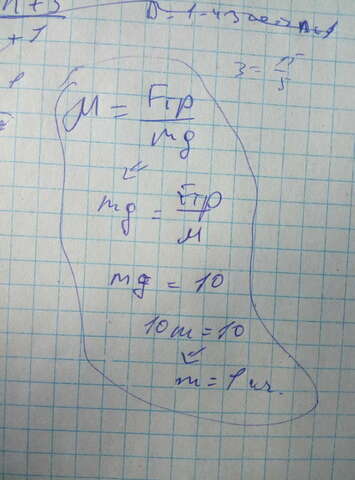 n+3
+1
3 = n/5
μ = Fтр/mg
mg = Fтр/μ
mg = 10
10m = 10
m = 1 кг.